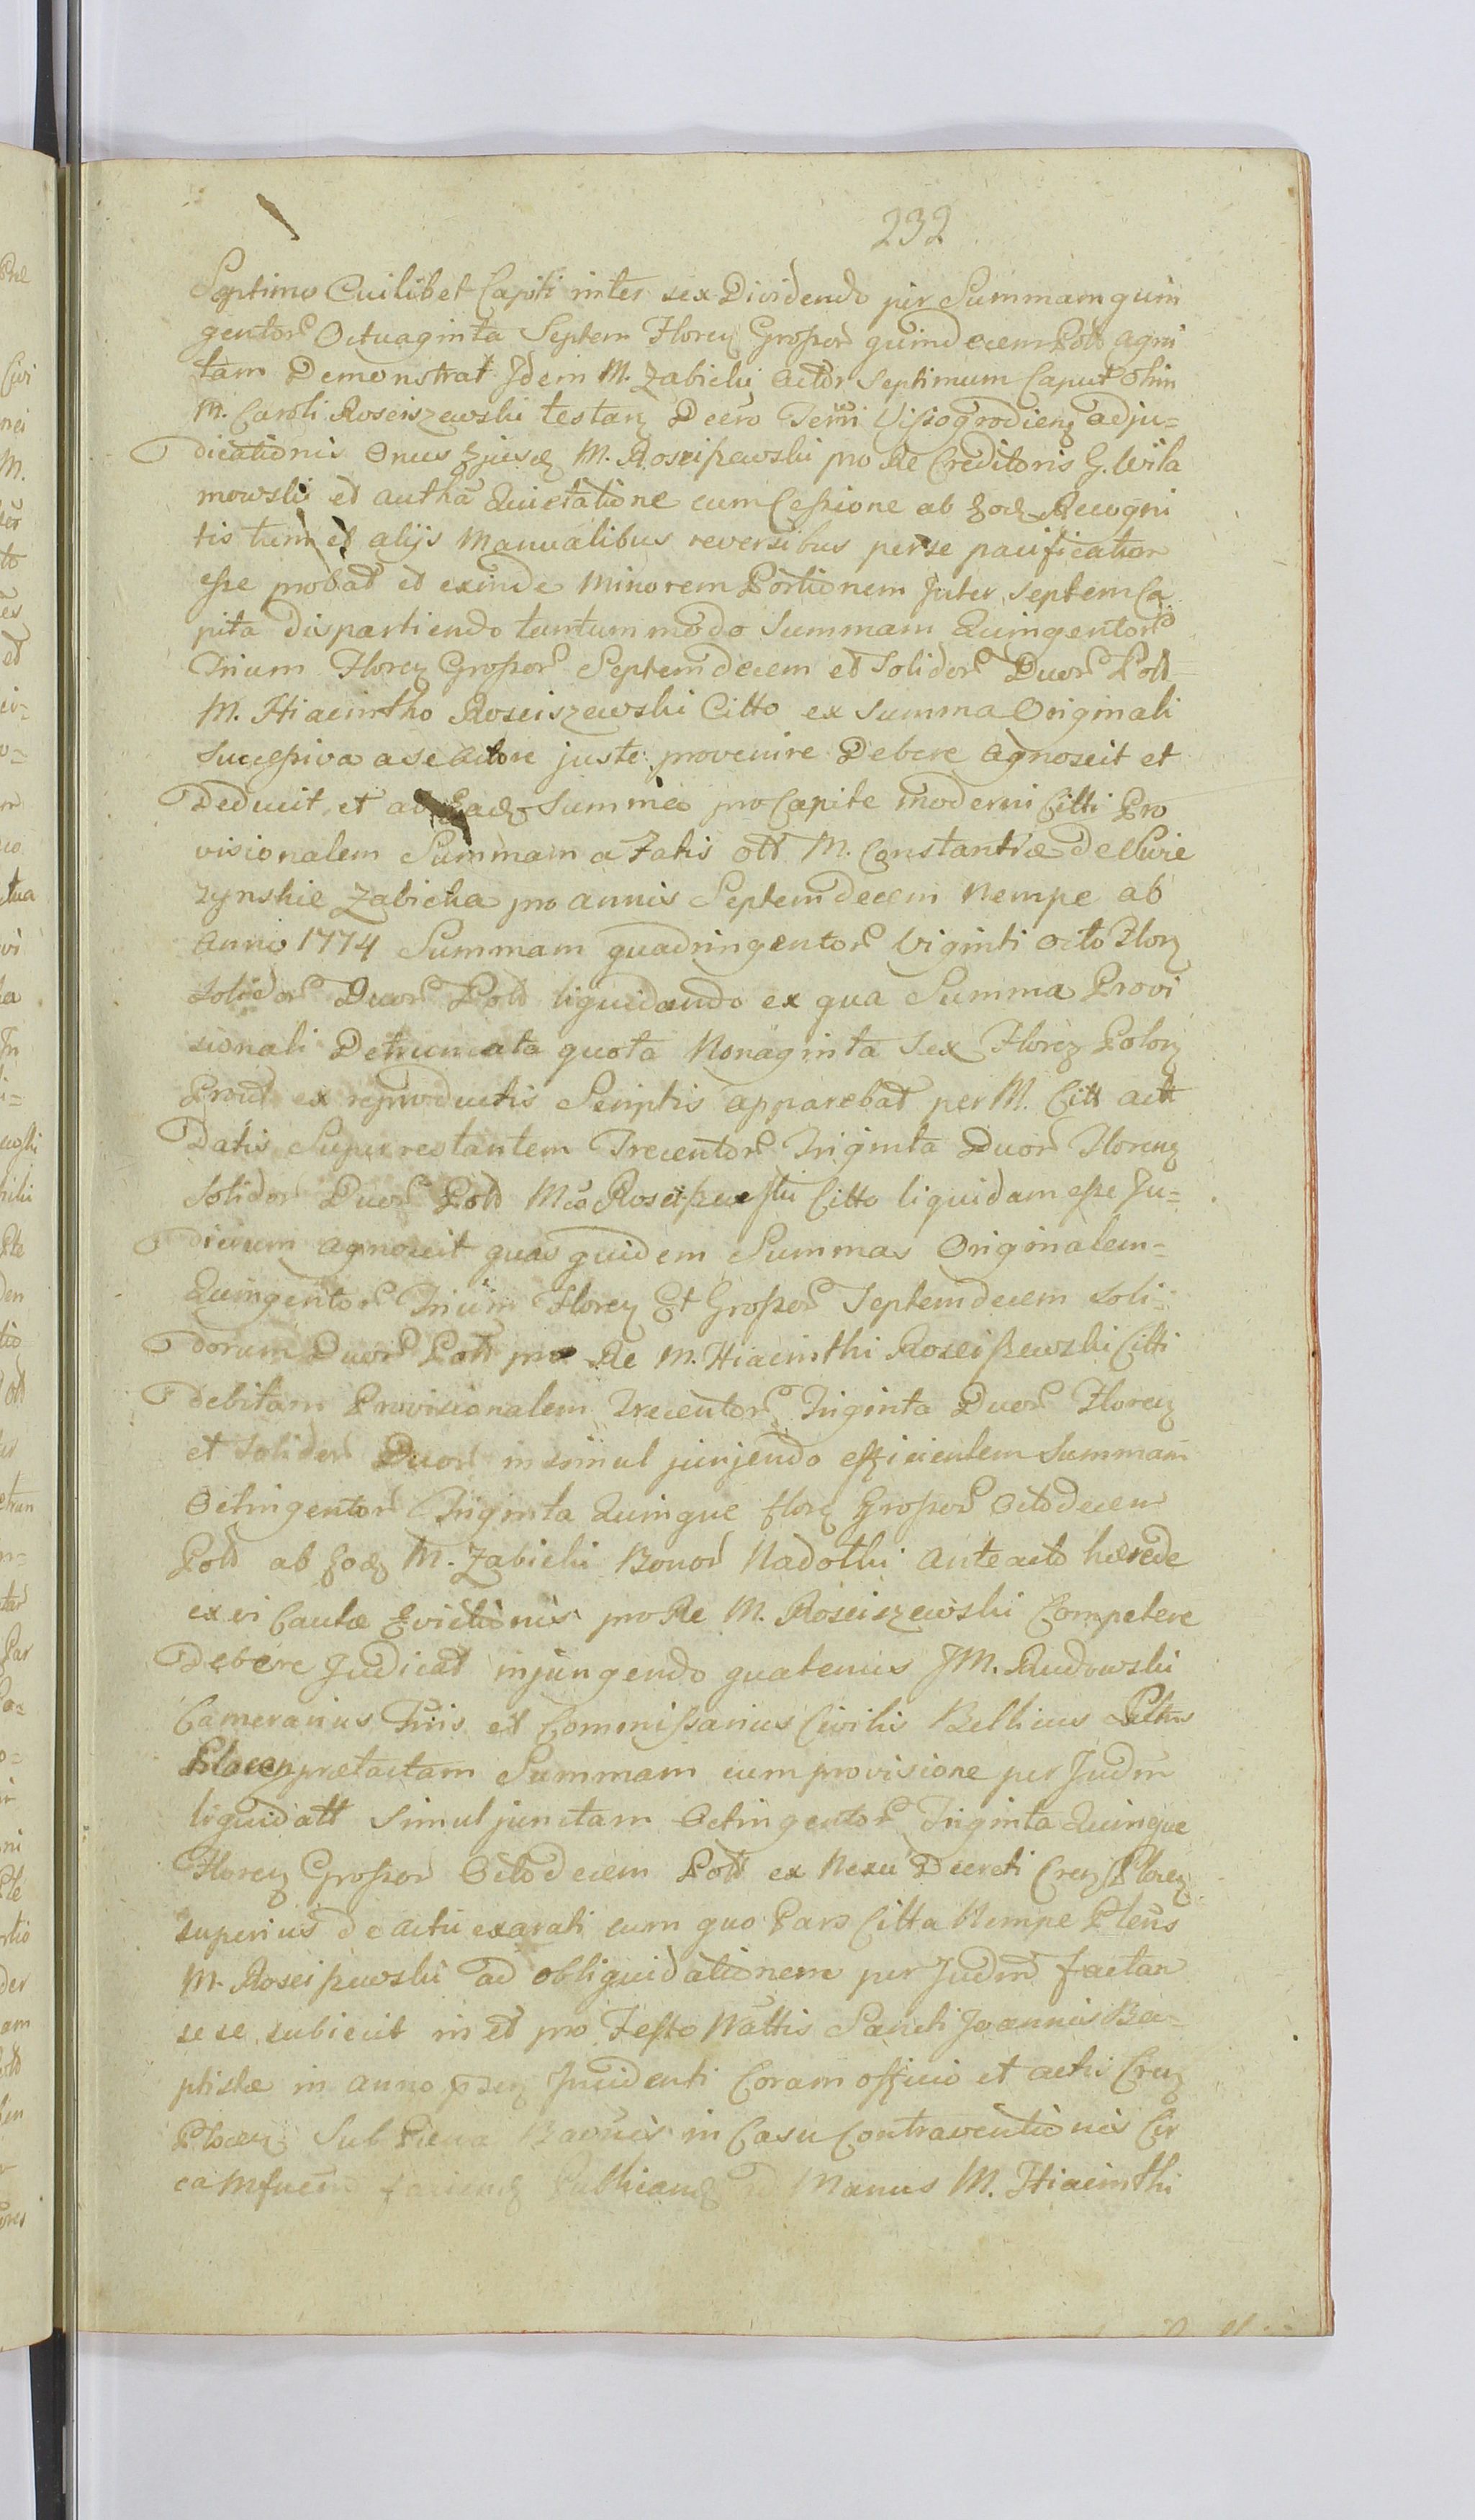 232
Septimo Cuilibet Capiti inter sex Dividendo per Summam quin
gentor Octuaginta Septem Floren Grossor quindecem Poll agni
tam Demonstrat Idem M. Zabicki actor Septimum Caput Olim
M. Caroli Rosciszewski testan Decro Terri Vissogrodien adju=
dicationis Onus Ejusd M. Rosciszewski pro Re Creditoris G. Wila
mowski et autha Quietatione cum Cessione ab Eod Recogni
tis tum et alijs Manualibus reversibus per se pacificatum
esse probat et exinde Minorem Portionem Inter Septem Ca
pita dispartiendo tantum modo Summam Quingentor
Trium Floren Grossor Septemdecem et Solidor Duor Poll
M. Hiacintho Rosciszewski Citto ex Summa Originali
Successiva a se actore juste provenire Debere agnoscit et
Deducit et ab Ead Summa pro Capite moderni Citti Pro
visionalem Summam a Fatis oll M. Constantiæ de
zynskie Zabicka pro annis Septemdecem Nempe ab
Anno 1774 Summam quadringentor Viginti octo Flor
Solidor Duor Poll liquidando ex qua Summa Provi
sionali Detruncata quota Nonaginta Sex Floren Polon
Prout ex reproductis Scriptis apparebat per M. Citt act
Datis Superrestantem Trecentor Triginta Duor Floren
Solidor Duor Poll Mco Rosciszewski Citto liquidam esse Ju=
dicium agnovit quas quidem Summas Originalem=
Quingentor Trium Floren Et Grossor Septemdecem Soli=
dorum Duor Poll pro Re M. Hiacinthi Rosciszewski Citti
debitam Provisionalem Trecentor Triginta Duor Floren
et Solidor Duor insimul junjendo efficientem Summam
Octingentor Triginta Quinque flor Grossor Octodecem
Poll ab Eod M. Zabicki Bonor Nadolki anteacto hærede
ex vi Cautæ Evictionis pro Re M. Rosciszewski Competere
Debere Judicat injungendo quatenus JM. Rudowski
Camerarius Tris et Commissarius Civilis Bellicus Pltus
Plocen prætactam Summam cum provisione per Judm
liquidatt Simul junctam Octingentor Triginta Quinque
Floren Grossor Octodecem Poll ex Nexu Decreti Cren Plocen
superius de actu exarati cum quo Pars Citta Nempe Plens
M. Rosciszewski ad obliquidationem per Judm factam
sese subiecit in et pro Festo Nattis Sancti Joannis Ba=
ptistæ in anno Incidenti Coram officio et actis Cren
Plocen Sub Pæna Bannis in Casu Contraventionis Cir
ca faciend Publicand ad Manus M. Hiacinthi